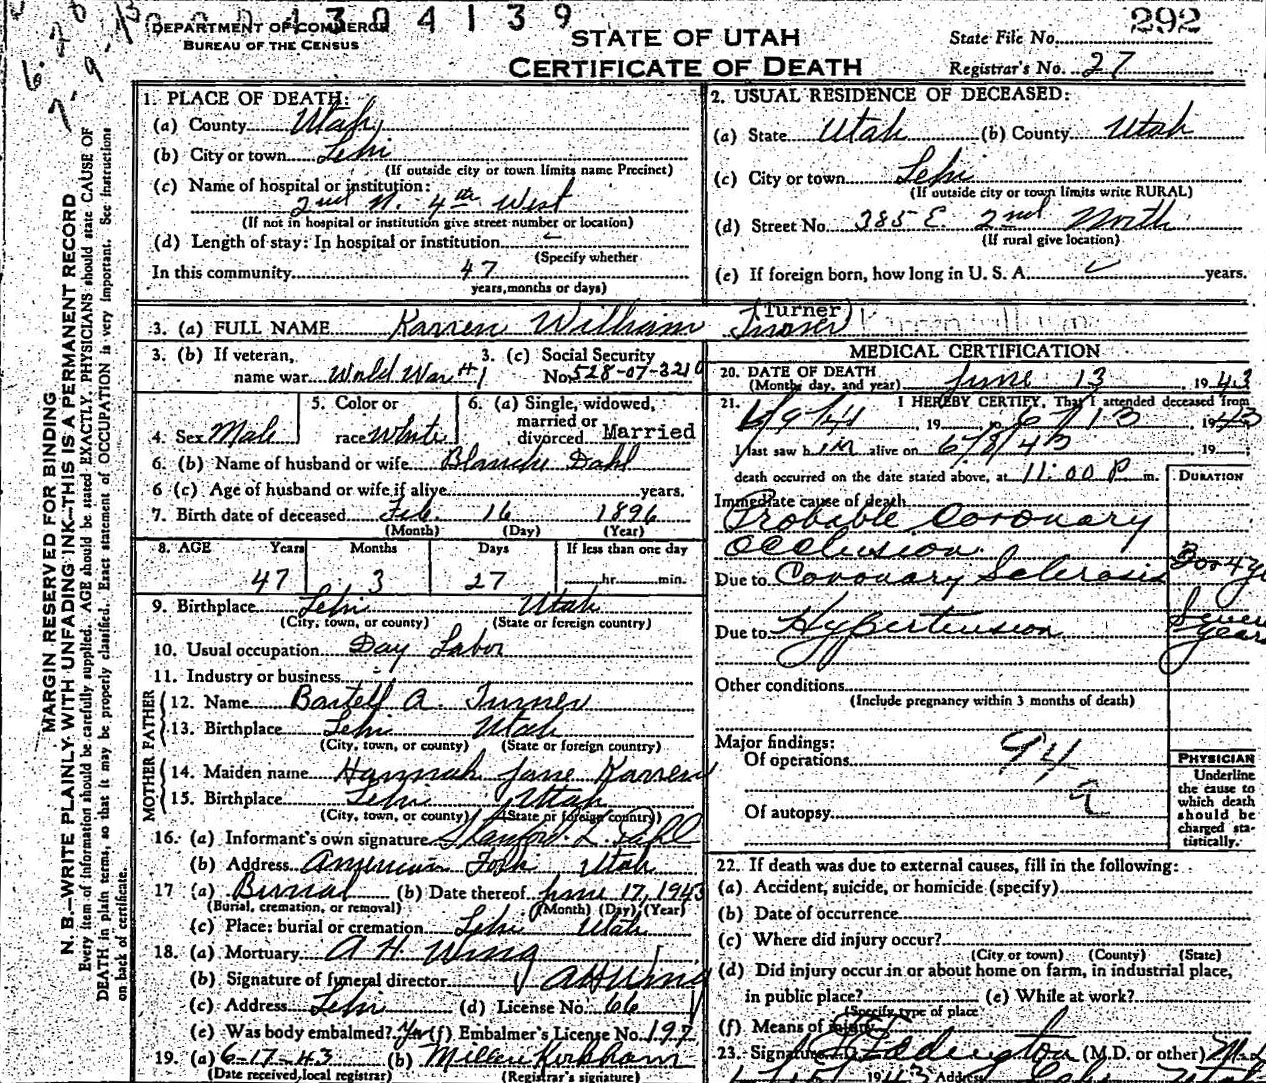 1304139
DEPARTMENT OF COMMERCE
BUREAU OF THE CENSUS
STATE OF UTAH
CERTIFICATE OF DEATH
292
State File No.
Registrar's No. 27
MARGIN RESERVED FOR BINDING
N. B.—WRITE PLAINLY, WITH UNFADING INK—THIS IS A PERMANENT RECORD
Every item of information should be carefully supplied. AGE should be stated EXACTLY. PHYSICIANS should state CAUSE OF
DEATH in plain terms, so that it may be properly classified. Exact statement of OCCUPATION is very important. See instructions
on back of certificate.
1. PLACE OF DEATH:
(a) County Utah
(b) City or town Lehi
(If outside city or town limits name Precinct)
(c) Name of hospital or institution:
2nd N. 4th West
(If not in hospital or institution give street number or location)
(d) Length of stay: In hospital or institution
(Specify whether
In this community 47
years, months or days)
2. USUAL RESIDENCE OF DECEASED:
(a) State Utah (b) County Utah
(c) City or town Lehi
(If outside city or town limits write RURAL)
(d) Street No. 385 E. 2nd North
(If rural give location)
(e) If foreign born, how long in U. S. A. years.
3. (a) FULL NAME Karren William Turner (Turner)
3. (b) If veteran,
name war World War #1
3. (c) Social Security
No. 528-07-3210
4. Sex Male
5. Color or
race White
6. (a) Single, widowed,
married or
divorced Married
6. (b) Name of husband or wife Blanche Dahl
6 (c) Age of husband or wife if alive years.
7. Birth date of deceased Feb. 16 1896
(Month) (Day) (Year)
8. AGE Years Months Days If less than one day
47 3 27 hr. min.
9. Birthplace Lehi Utah
(City, town, or county) (State or foreign country)
10. Usual occupation Day Labor
11. Industry or business
FATHER
12. Name Bartell A. Turner
13. Birthplace Lehi Utah
(City, town, or county) (State or foreign country)
MOTHER
14. Maiden name Hannah Jane Karren
15. Birthplace Lehi Utah
(City, town, or county) (State or foreign country)
16. (a) Informant's own signature Stanford L. Dahl
(b) Address American Fork Utah
17 (a) Burial (b) Date thereof June 17, 1943
(Burial, cremation, or removal) (Month) (Day) (Year)
(c) Place: burial or cremation Lehi Utah
18. (a) Mortuary A. H. Wing
(b) Signature of funeral director A H Wing
(c) Address Lehi (d) License No. 66
(e) Was body embalmed? Yes (f) Embalmer's License No. 197
19. (a) 6-17-43 (b) Millen Kirkham
(Date received local registrar) (Registrar's signature)
MEDICAL CERTIFICATION
20. DATE OF DEATH
(Month, day, and year) June 13, 1943
21. I HEREBY CERTIFY, That I attended deceased from
, 19 to 6/13, 1943
I last saw h im alive on 6/8/43, 19
death occurred on the date stated above, at 11:00 P m.
DURATION
Immediate cause of death
Probable Coronary
Occlusion
Due to Coronary Sclerosis 3 or 4 y
Due to Hypertension Several
years
Other conditions
(Include pregnancy within 3 months of death)
Major findings:
Of operations 94
a
Of autopsy
PHYSICIAN
Underline
the cause to
which death
should be
charged sta-
tistically.
22. If death was due to external causes, fill in the following:
(a) Accident, suicide, or homicide (specify)
(b) Date of occurrence
(c) Where did injury occur?
(City or town) (County) (State)
(d) Did injury occur in or about home on farm, in industrial place,
in public place? (e) While at work?
(Specify type of place
(f) Means of injury
23. Signature Eddington (M.D. or other) M.D.
1943 Address Lehi Utah